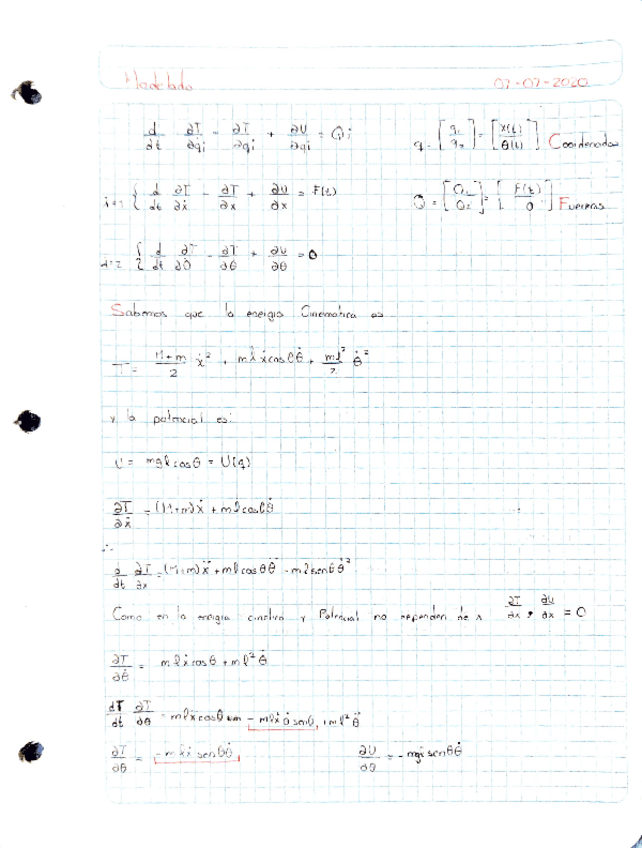 Modelado 07-07-2020
d/dt ∂T/∂q̇i - ∂T/∂qi + ∂U/∂qi = Qi q = [q1 q2] = [x(t) θ(t)] Coordenadas
i=1 { d/dt ∂T/∂ẋ - ∂T/∂x + ∂U/∂x = F(t) Q = [Q1 Q2] = [F(t) 0] Fuerzas
i=2 { d/dt ∂T/∂θ̇ - ∂T/∂θ + ∂U/∂θ = 0
Sabemos que la energia Cinemática es
T = M+m/2 ẋ² + mlẋcosθθ̇ + ml²/2 θ̇²
y la potencial es:
U = mglcosθ = U(q)
∂T/∂ẋ = (M+m)ẋ + mlcosθθ̇
∴
d/dt ∂T/∂ẋ = (M+m)ẍ + mlcosθθ̈ - mlsenθθ̇²
Como en la energia cinetica y Potencial no dependen de x ∂T/∂x, ∂U/∂x = 0
∂T/∂θ̇ = mlẋcosθ + ml²θ̇
dT/dt ∂T/∂θ = mlẍcosθ - mlẋθ̇senθ + ml²θ̈
∂T/∂θ = -mlẋsenθθ̇ ∂U/∂θ = -mglsenθθ̇